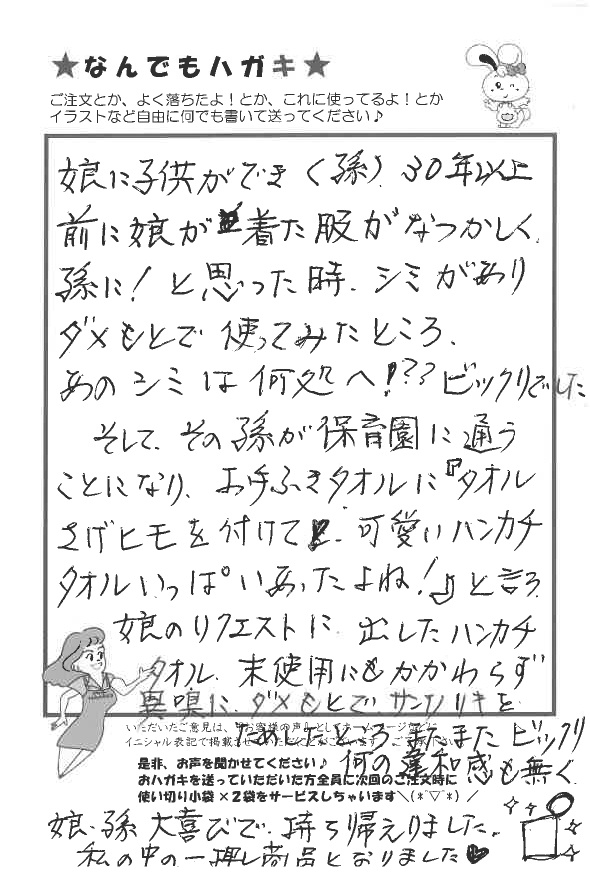 ★なんでもハガキ★
ご注文とか、よく落ちたよ！とか、これに使ってるよ！とか
イラストなど自由に何でも書いて送ってください♪
娘に子供ができ(孫)、30年以上
前に娘が着た服がなつかしく、
孫に！と思った時、シミがあり
ダメもとで使ってみたところ、
あのシミは何処へ！??ビックリでした
そして、その孫が保育園に通う
ことになり、お手ふきタオルに『タオル
さげヒモを付けて、可愛いハンカチ
タオルいっぱいあったよね！』と言う
娘のリクエストに、出したハンカチ
タオル、未使用にもかかわらず
異嗅に、ダメもとで、サンノリキを
いただいたご意見は、「お客様の声」としてホームページなどに
ためしたところ、またまたビックリ
イニシャル表記で掲載させていただくことがございます。ご了承
是非、お声を聞かせてください♪
何の違和感も無く
おハガキを送っていただいた方全員に次回のご注文時に
使い切り小袋×2袋をサービスしちゃいます＼(*^▽^*)／
娘・孫 大喜びで、持ち帰えりました。
私の中の一押し商品となりました♥